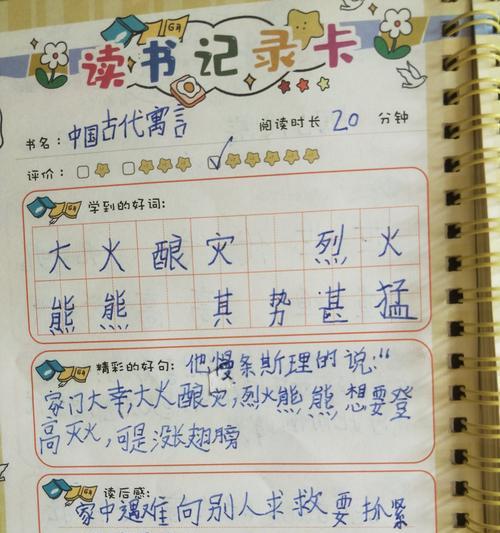 读书记录卡
书名: 中国古代寓言 阅读时长 20 分钟
评价:
学到的好词:
大火酿灾 烈火
熊熊 其势甚猛
精彩的好句: 他慢条斯理的说:“
家门大幸,大火酿灾,烈火熊熊想要登
高灭火,可是没长翅膀
读后感:
家中遇难向别人求救要抓紧